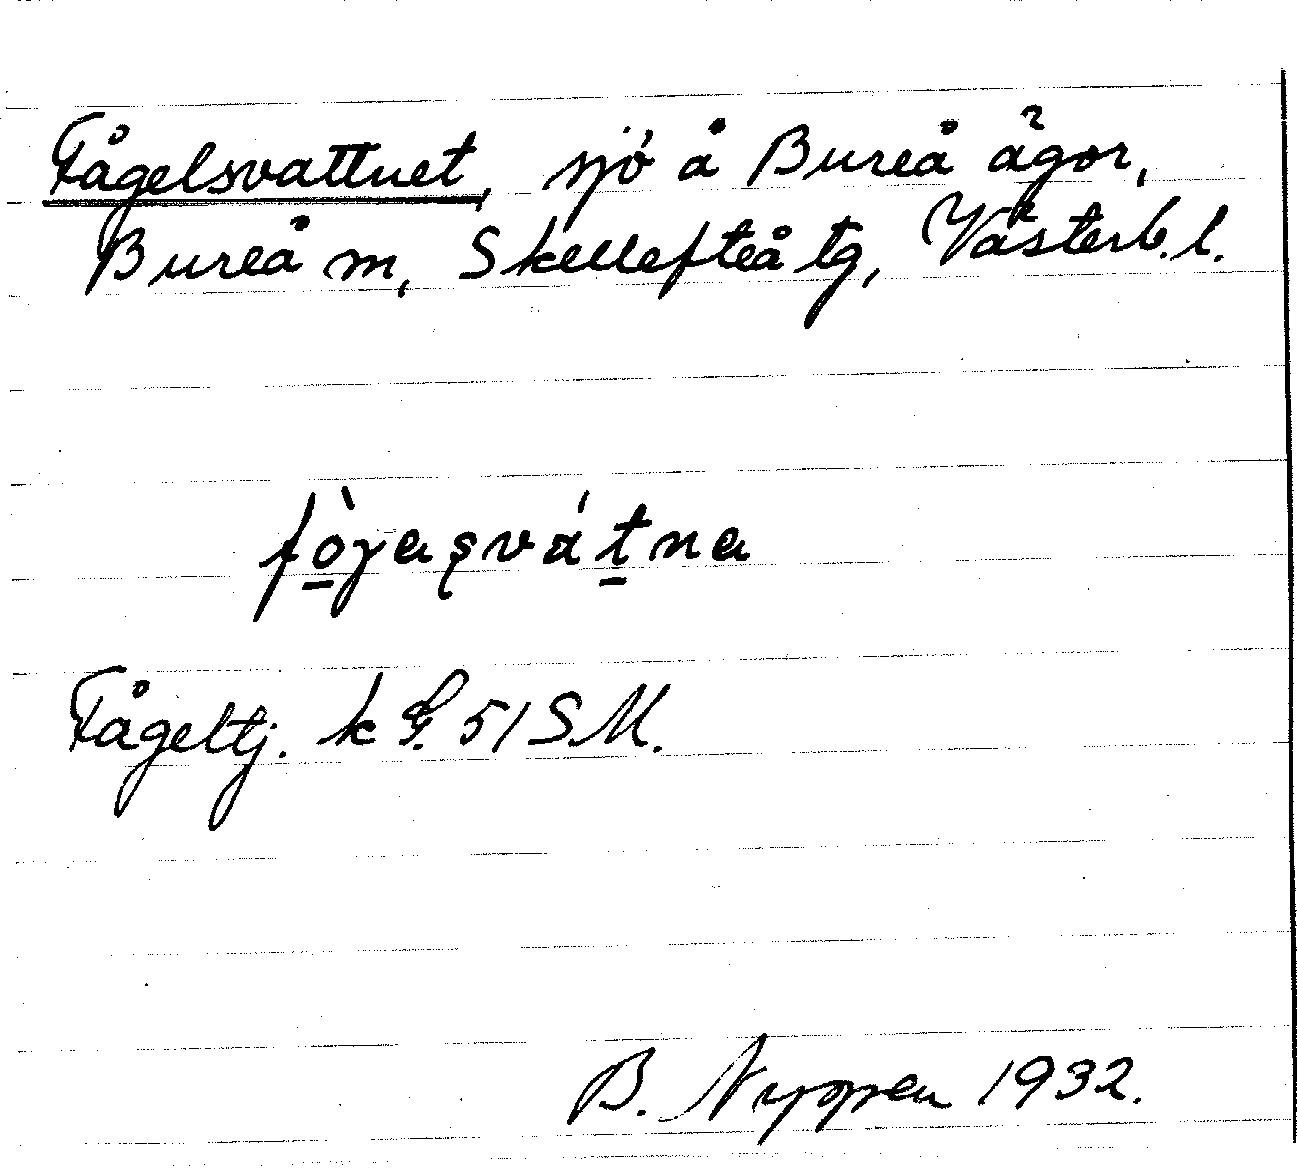 Fågelsvattnet, sjö å Bureå ägor,
Bureå m, Skellefteå tg, Västerb. l.
fò̱γasvát̠na
Fågeltj. k G. 51 SM.
B. Nyppen 1932.